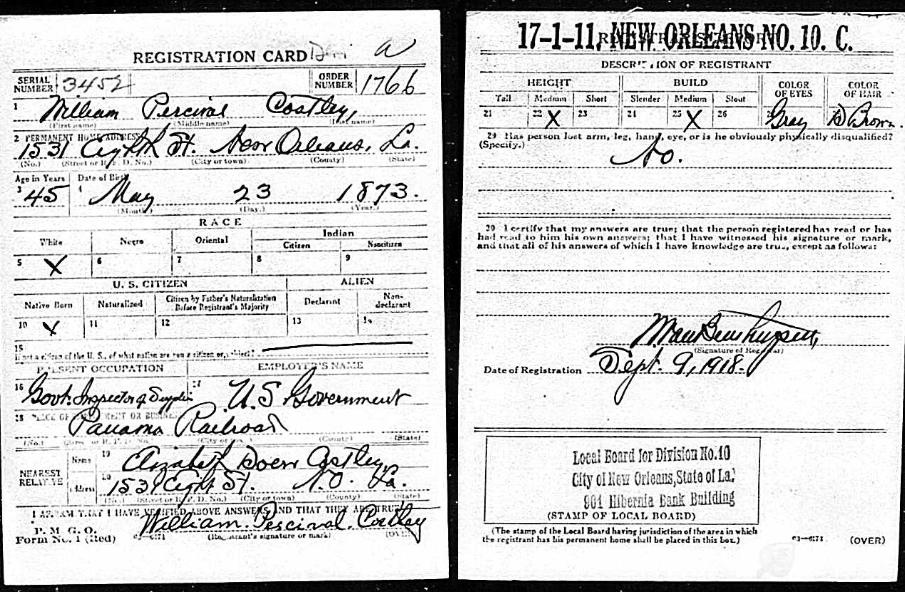 REGISTRATION CARD
SERIAL NUMBER 3452 ORDER NUMBER 1766
1 William Percival Costley
(First name) (Middle name) (Last name)
2 PERMANENT HOME ADDRESS
1531 Eighth St. New Orleans, La.
(No.) (Street or R. F. D. No.) (City or town) (County) (State)
Age in Years Date of Birth
3 45 4 May 23 1873.
(Month.) (Day.) (Year.)
RACE
White Negro Oriental Indian
Citizen Noncitizen
5 X 6 7 8 9
U. S. CITIZEN ALIEN
Native Born Naturalized Citizen by Father's Naturalization Before Registrant's Majority Declarant Non-declarant
10 X 11 12 13 14
15
If not a citizen of the U. S., of what nation are you a citizen or subject?
PRESENT OCCUPATION EMPLOYER'S NAME
16 Govt. Inspector of 17 U.S Government
18 PLACE OF EMPLOYMENT OR BUSINESS
Panama Railroad
(No.) (Street or R. F. D. No.) (City or town) (County) (State)
NEAREST RELATIVE Name 19 Elizabeth Costley
Address 20 1531 Eight St. N.O. La.
(No.) (Street or R. F. D. No.) (City or town) (County) (State)
I AFFIRM THAT I HAVE VERIFIED ABOVE ANSWERS AND THAT THEY ARE TRUE
P. M. G. O.
Form No. 1 (Red) 03—6171 William Percival Costley
(Registrant's signature or mark) (OVER)
17-1-11, NEW ORLEANS NO. 10. C.
DESCRIPTION OF REGISTRANT
HEIGHT BUILD COLOR OF EYES COLOR OF HAIR
Tall Medium Short Slender Medium Stout
21 22 X 23 24 25 X 26 27 Gray 28 D Brown
29 Has person lost arm, leg, hand, eye, or is he obviously physically disqualified?
(Specify.) No.
30 I certify that my answers are true; that the person registered has read or has
had read to him his own answers; that I have witnessed his signature or mark,
and that all of his answers of which I have knowledge are true, except as follows:
(Signature of Registrar)
Date of Registration Sept. 9, 1918.
Local Board for Division No.10
City of New Orleans, State of La.
901 Hibernia Bank Building
(STAMP OF LOCAL BOARD)
(The stamp of the Local Board having jurisdiction of the area in which
the registrant has his permanent home shall be placed in this box.) 03—6171 (OVER)